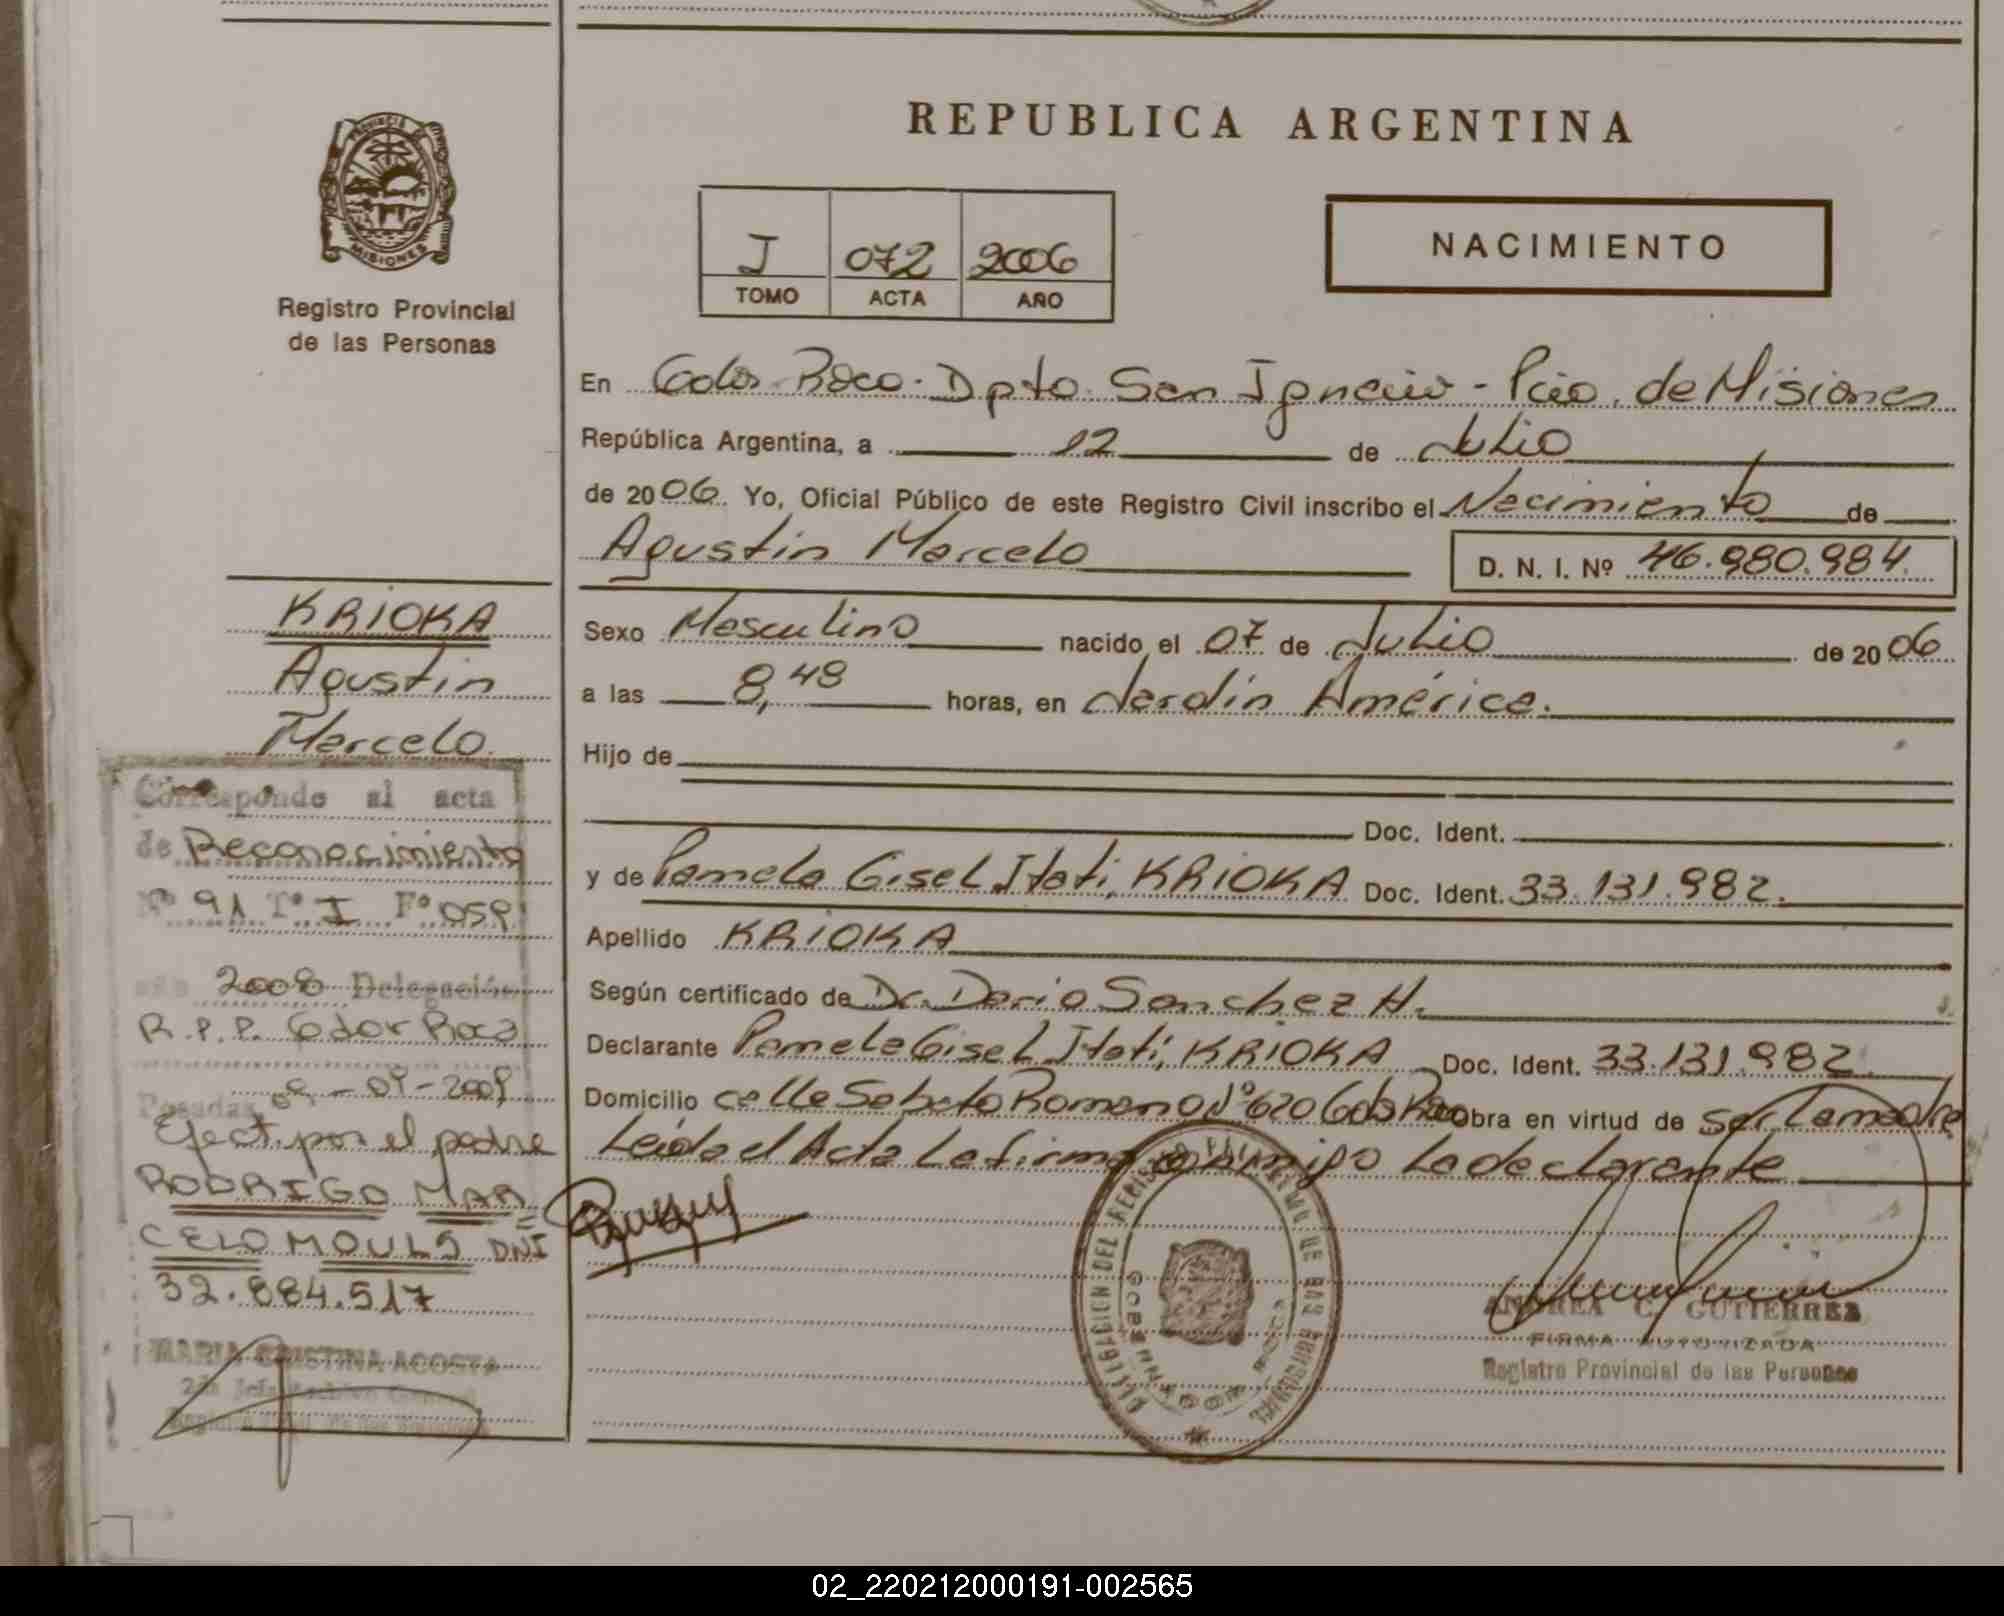 REPUBLICA ARGENTINA
PROVINCIA DE
MISIONES
Registro Provincial
de las Personas
J 072 2006
TOMO ACTA AÑO
NACIMIENTO
En Gdor. Roca. Dpto. San Ignacio - Pcia. de Misiones
República Argentina, a 12 de Julio
de 2006. Yo, Oficial Público de este Registro Civil inscribo el Nacimiento de
Agustin Marcelo
D. N. I. Nº 46.980.984.
Sexo Masculino nacido el 07 de Julio de 2006
a las 8,48 horas, en Jardín América.
Hijo de
Doc. Ident.
y de Pamela Gisel Itati, KRIOKA Doc. Ident. 33.131.982.
Apellido KRIOKA
Según certificado de Dr. Dario Sanchez H.
Declarante Pamela Gisel Itati, KRIOKA Doc. Ident. 33.131.982
Domicilio calle Sabato Romano Nº 620 Gdor Roca Obra en virtud de ser la madre
Leída el Acta la firma conmigo la declarante
KRIOKA
Agustin
Marcelo
Corresponde al acta
de Reconocimiento
Nº 91 Tº I Fº 059
año 2008 Delegación
R.P.P. Gdor Roca
Posadas, -09-2009
Efect. por el padre
RODRIGO MAR
CELO MOULS DNI
32.884.517
MARIA CRISTINA ACOSTA
2da Jefa Archivo General
DELEGACION DEL REGISTRO
GOBERNADOR ROCA
ANDREA C. GUTIERREZ
FIRMA AUTORIZADA
Registro Provincial de las Personas
02_220212000191-002565